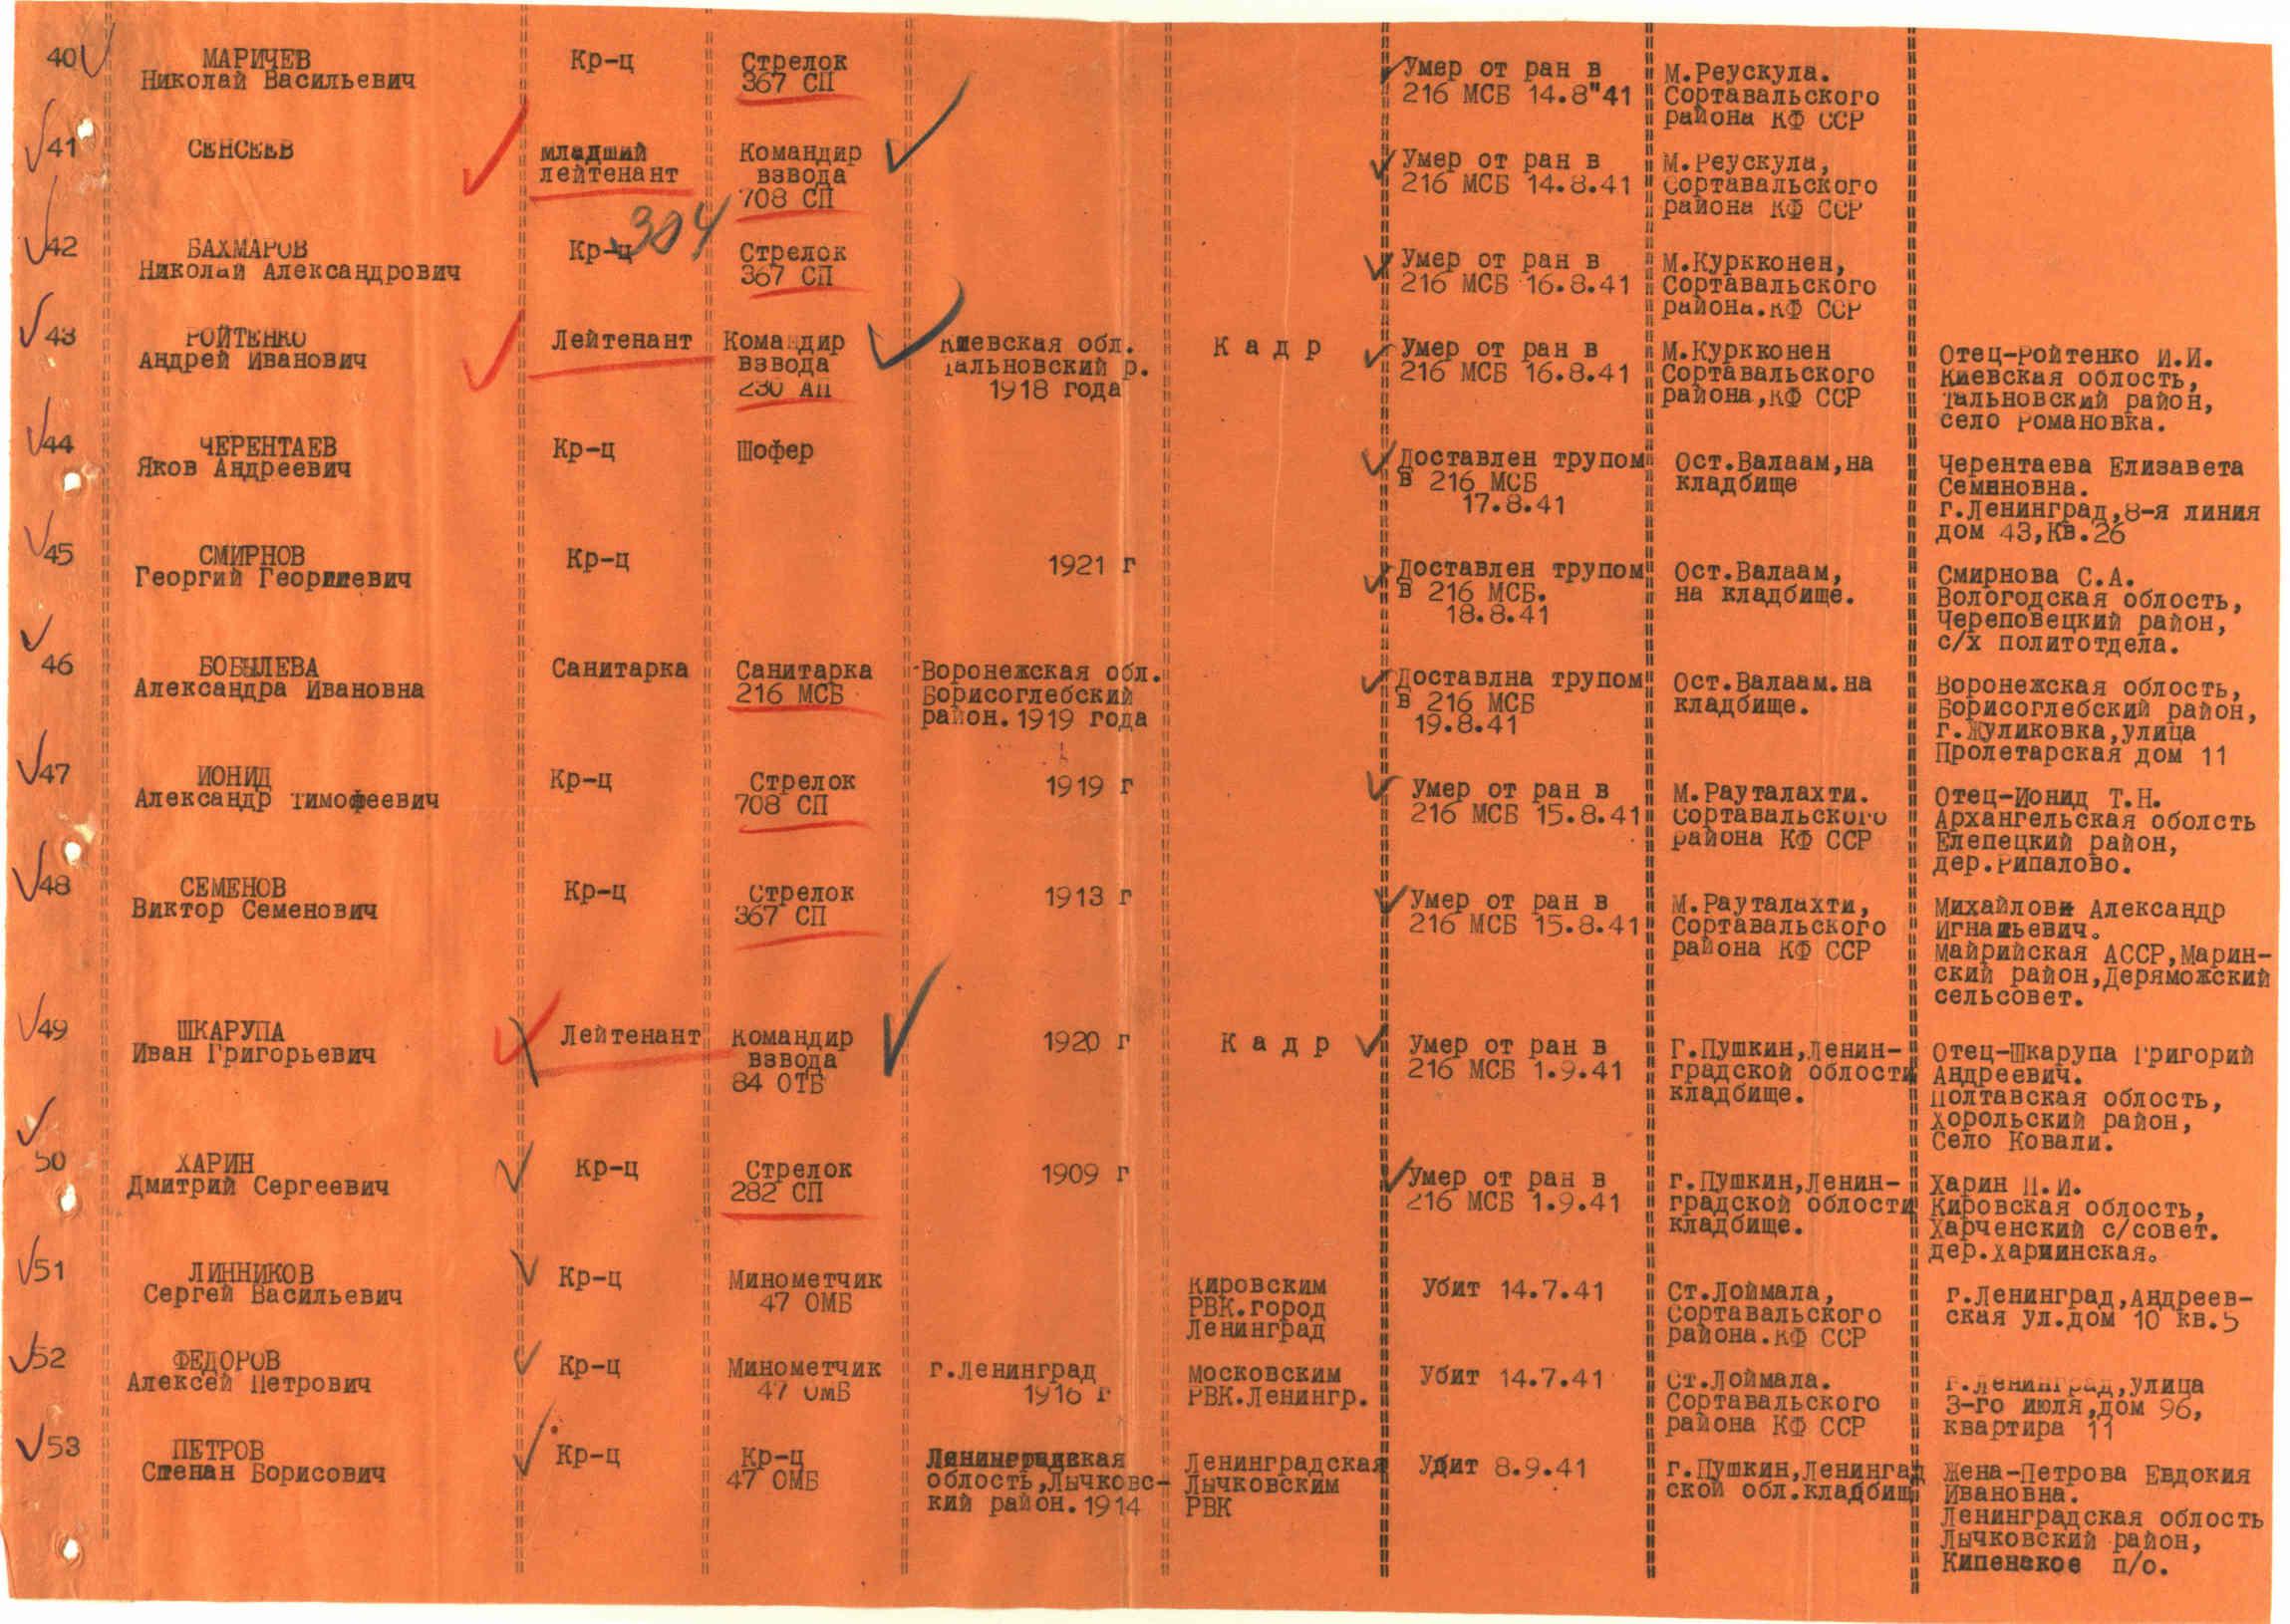 40 МАРИЧЕВ
Николай Васильевич
Кр-ц
Стрелок
367 СП
Умер от ран в
216 МСБ 14.8"41
М.Реускула.
Сортавальского
района КФ ССР
41 СЕНСЕЕВ
младший
лейтенант
Командир
взвода
708 СП
Умер от ран в
216 МСБ 14.8.41
М.Реускула,
Сортавальского
района КФ ССР
304
42 БАХМАРОВ
Николай Александрович
Кр-ц
Стрелок
367 СП
Умер от ран в
216 МСБ 16.8.41
М.Куркконен,
Сортавальского
района.КФ ССР
43 РОЙТЕНКО
Андрей Иванович
Лейтенант
Командир
взвода
230 АП
Киевская обл.
Тальновский р.
1918 года
К а д р
Умер от ран в
216 МСБ 16.8.41
М.Куркконен
Сортавальского
района,КФ ССР
Отец-Ройтенко И.И.
Киевская облость,
Тальновский район,
село Романовка.
44 ЧЕРЕНТАЕВ
Яков Андреевич
Кр-ц
Шофер
Доставлен трупом
в 216 МСБ
17.8.41
Ост.Валаам,на
кладбище
Черентаева Елизавета
Семеновна.
г.Ленинград,8-я линия
дом 43,Кв.26
45 СМИРНОВ
Георгий Георгиевич
Кр-ц
1921 г
Доставлен трупом
в 216 МСБ.
18.8.41
Ост.Валаам,
на кладбище.
Смирнова С.А.
Вологодская облость,
Череповецкий район,
с/х политотдела.
46 БОБЫЛЕВА
Александра Ивановна
Санитарка
Санитарка
216 МСБ
Воронежская обл.
Борисоглебский
район.1919 года
Доставлна трупом
в 216 МСБ
19.8.41
Ост.Валаам.на
кладбище.
Воронежская облость,
Борисоглебский район,
г.Жуликовка,улица
Пролетарская дом 11
47 ИОНИД
Александр Тимофеевич
Кр-ц
Стрелок
708 СП
1919 г
Умер от ран в
216 МСБ 15.8.41
М.Рауталахти.
Сортавальского
района КФ ССР
Отец-Ионид Т.Н.
Архангельская оболсть
Елепецкий район,
дер.Рипалово.
48 СЕМЕНОВ
Виктор Семенович
Кр-ц
Стрелок
367 СП
1913 г
Умер от ран в
216 МСБ 15.8.41
М.Рауталахти,
Сортавальского
района КФ ССР
Михайлови Александр
Игнатьевич.
Майрийская АССР,Марин-
ский район,Деряможский
сельсовет.
49 ШКАРУПА
Иван Григорьевич
Лейтенант
Командир
взвода
84 ОТБ
1920 г
К а д р
Умер от ран в
216 МСБ 1.9.41
Г.Пушкин,Ленин-
градской облости
кладбище.
Отец-Шкарупа Григорий
Андреевич.
Полтавская облость,
Хорольский район,
Село Ковали.
50 ХАРИН
Дмитрий Сергеевич
Кр-ц
Стрелок
282 СП
1909 г
Умер от ран в
216 МСБ 1.9.41
г.Пушкин,Ленин-
градской облости
кладбище.
Харин П.И.
Кировская облость,
Харченский с/совет.
дер.Хариинская.
51 ЛИННИКОВ
Сергей Васильевич
Кр-ц
Минометчик
47 ОМБ
Кировским
РВК.город
Ленинград
Убит 14.7.41
Ст.Лоймала,
Сортавальского
района.КФ ССР
г.Ленинград,Андреев-
ская ул.дом 10 кв.5
52 ФЕДОРОВ
Алексей Петрович
Кр-ц
Минометчик
47 ОМБ
г.Ленинград
1916 г
Московским
РВК.Ленингр.
Убит 14.7.41
Ст.Лоймала.
Сортавальского
района КФ ССР
г.Ленинград,улица
3-го июля,дом 96,
квартира 11
53 ПЕТРОВ
Степан Борисович
Кр-ц
Кр-ц
47 ОМБ
Ленинградская
облость,Лычковс-
кий район.1914
Ленинградская
Лычковским
РВК
Убит 8.9.41
г.Пушкин,Ленинград
ской обл.кладбищ
Жена-Петрова Евдокия
Ивановна.
Ленинградская облость
Лычковский район,
Кипенское п/о.